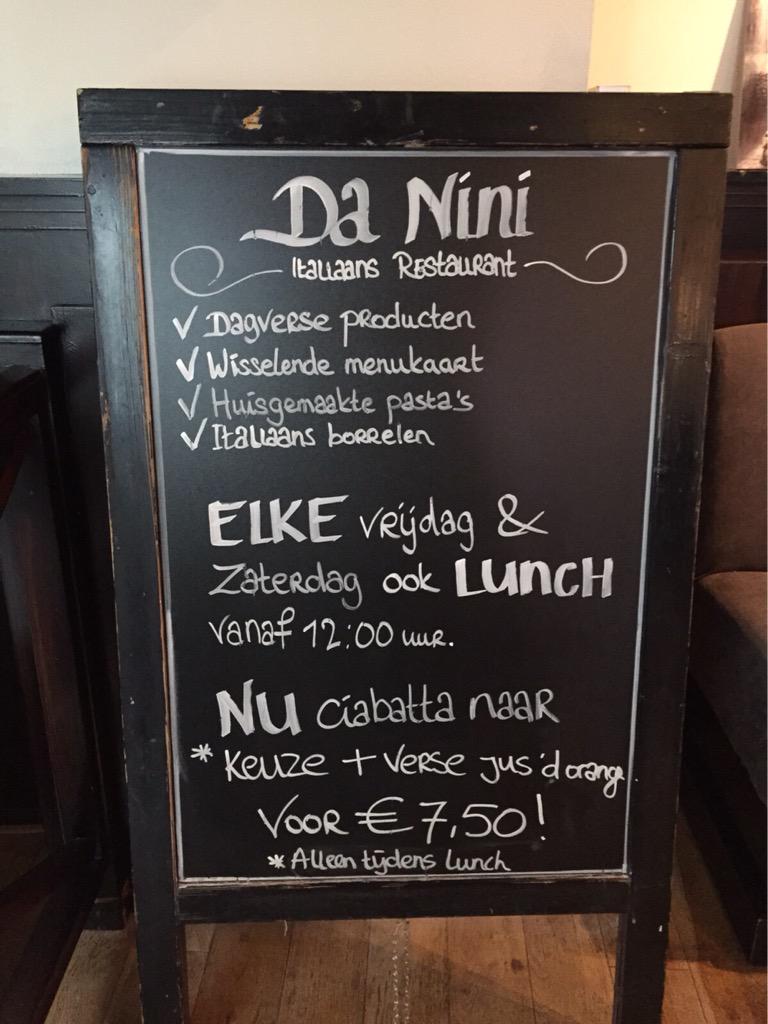 Da Nini
Italiaans Restaurant
✓ Dagverse producten
✓ Wisselende menukaart
✓ Huisgemaakte pasta's
✓ Italiaans borrelen
ELKE vrijdag &
Zaterdag ook LUNCH
vanaf 12:00 uur.
NU ciabatta naar
* keuze + verse jus 'd orange
Voor € 7,50!
* Alleen tijdens lunch